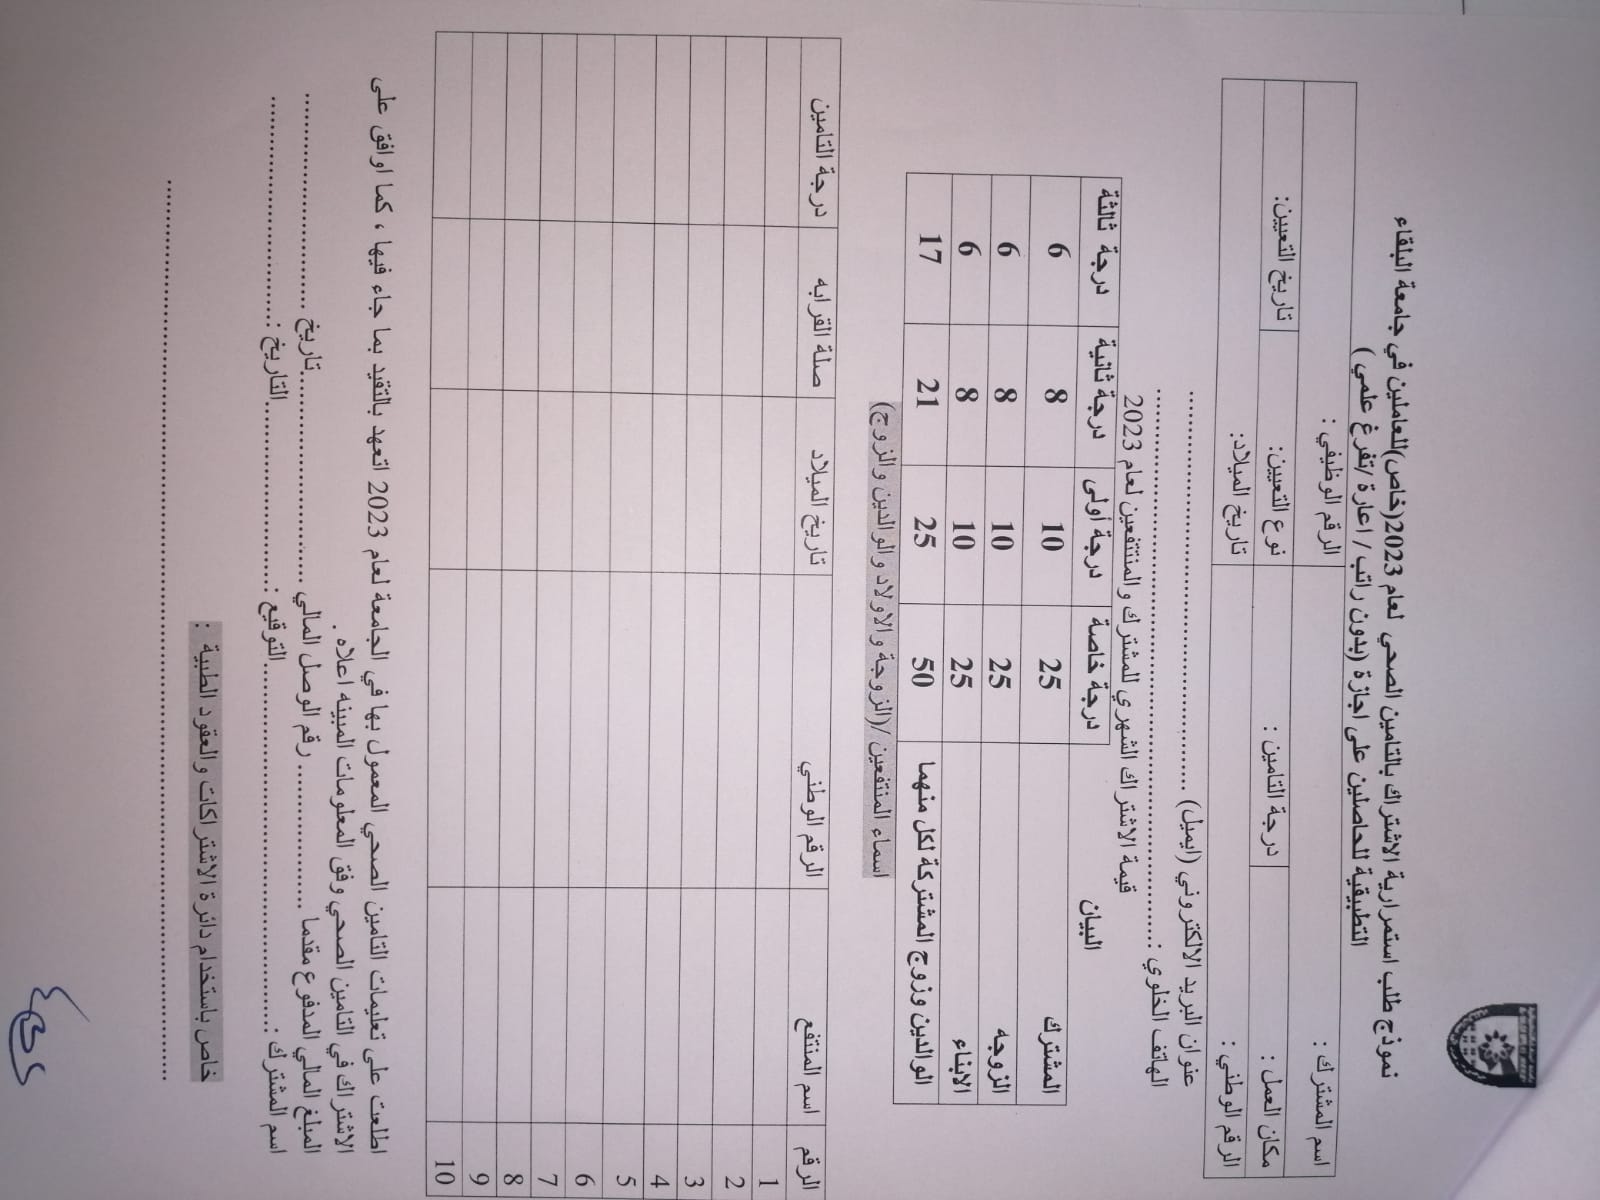 نموذج طلب استمرارية الاشتراك بالتامين الصحي لعام 2023(خاص)للعاملين في جامعة البلقاء
التطبيقية للحاصلين على اجازة (بدون راتب / اعارة /تفرغ علمي )
اسم المشترك : الرقم الوظيفي :
مكان العمل : درجة التامين : نوع التعيين: تاريخ التعيين:
الرقم الوطني : تاريخ الميلاد:
عنوان البريد الالكتروني (ايميل) ........................................
الهاتف الخلوي : ........................................
قيمة الاشتراك الشهري للمشترك والمنتفعين لعام 2023
البيان درجة خاصة درجة أولى درجة ثانية درجة ثالثة
المشترك 25 10 8 6
الزوجه 25 10 8 6
الابناء 25 10 8 6
الوالدين وزوج المشتركة لكل منهما 50 25 21 17
اسماء المنتفعين /(الزوجة والاولاد والوالدين والزوج)
الرقم اسم المنتفع الرقم الوطني تاريخ الميلاد صلة القرابه درجة التامين
1
2
3
4
5
6
7
8
9
10
اطلعت على تعليمات التامين الصحي المعمول بها في الجامعة لعام 2023 اتعهد بالتقيد بما جاء فيها ، كما اوافق على
الاشتراك في التامين الصحي وفق المعلومات المبينه اعلاه .
المبلغ المالي المدفوع مقدما .................... رقم الوصل المالي ....................تاريخ ....................
اسم المشترك : ........................................التوقيع : ....................التاريخ : ....................
خاص باستخدام دائرة الاشتراكات والعقود الطبية :
................................................................................